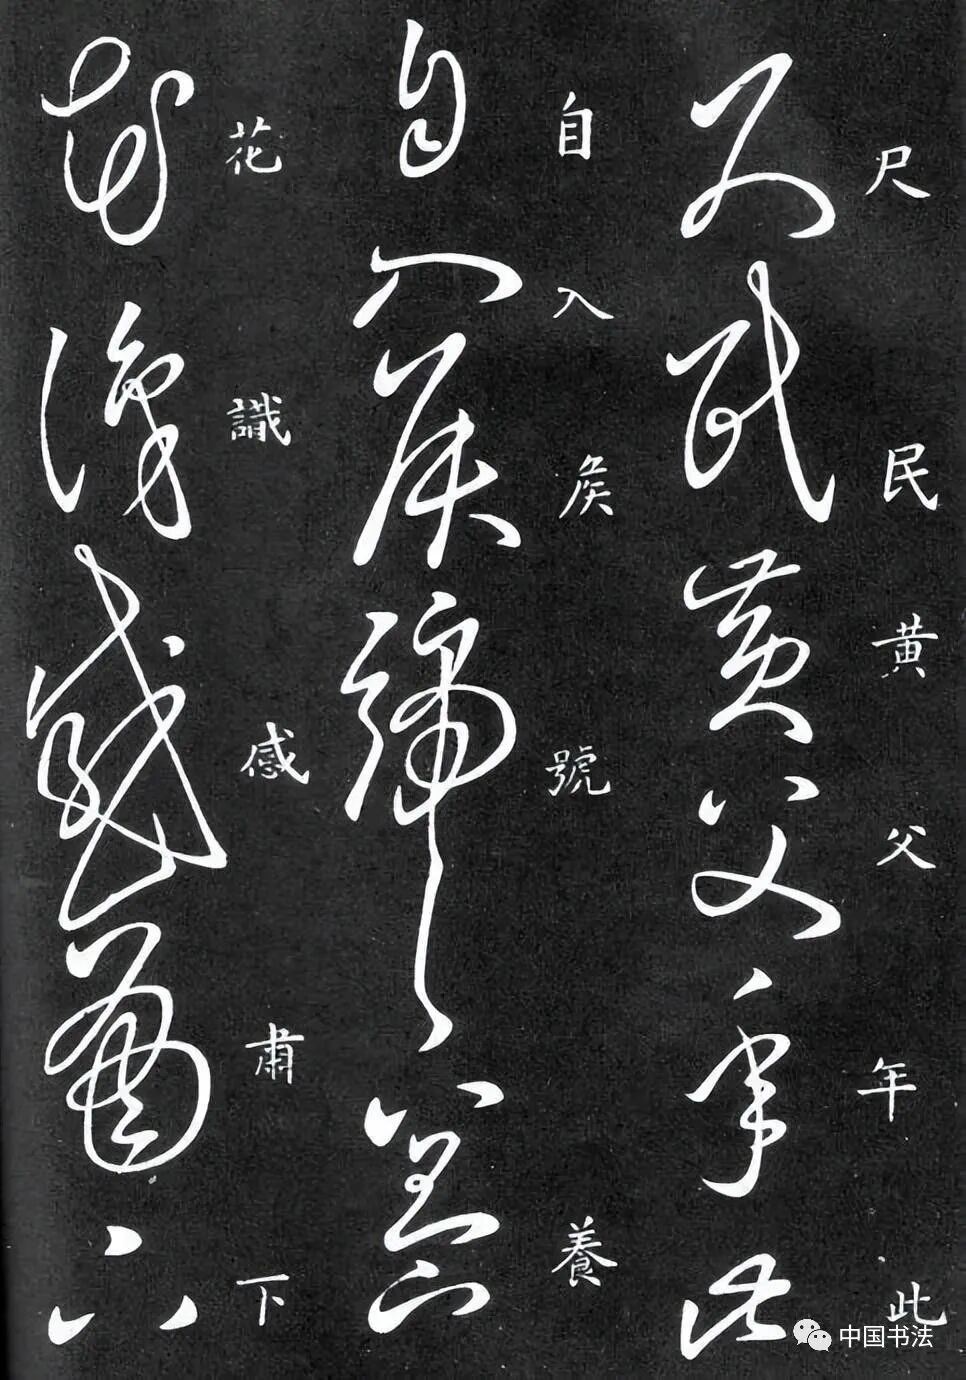 尺民黄父年此
自入矦號養
花識感肅下
中国书法